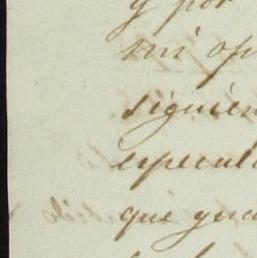 y por
mi op
siguien
especul
que gua